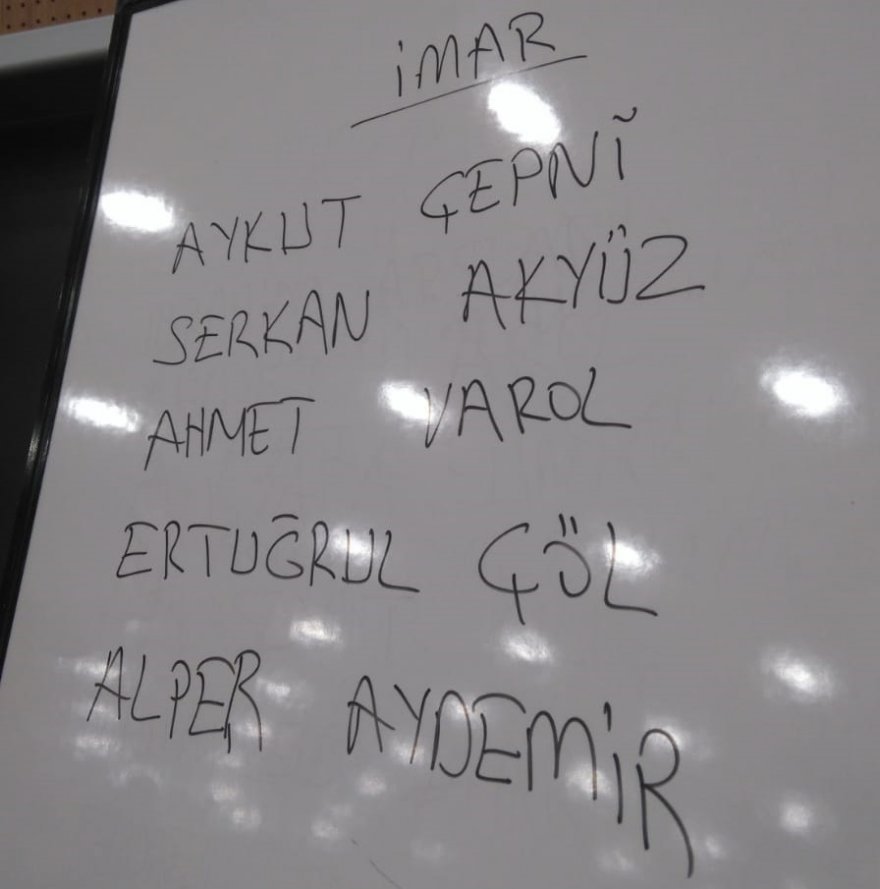 İMAR
AYKUT ÇEPNİ
SERKAN AKYÜZ
AHMET VAROL
ERTUĞRUL ÇÖL
ALPER AYDEMİR